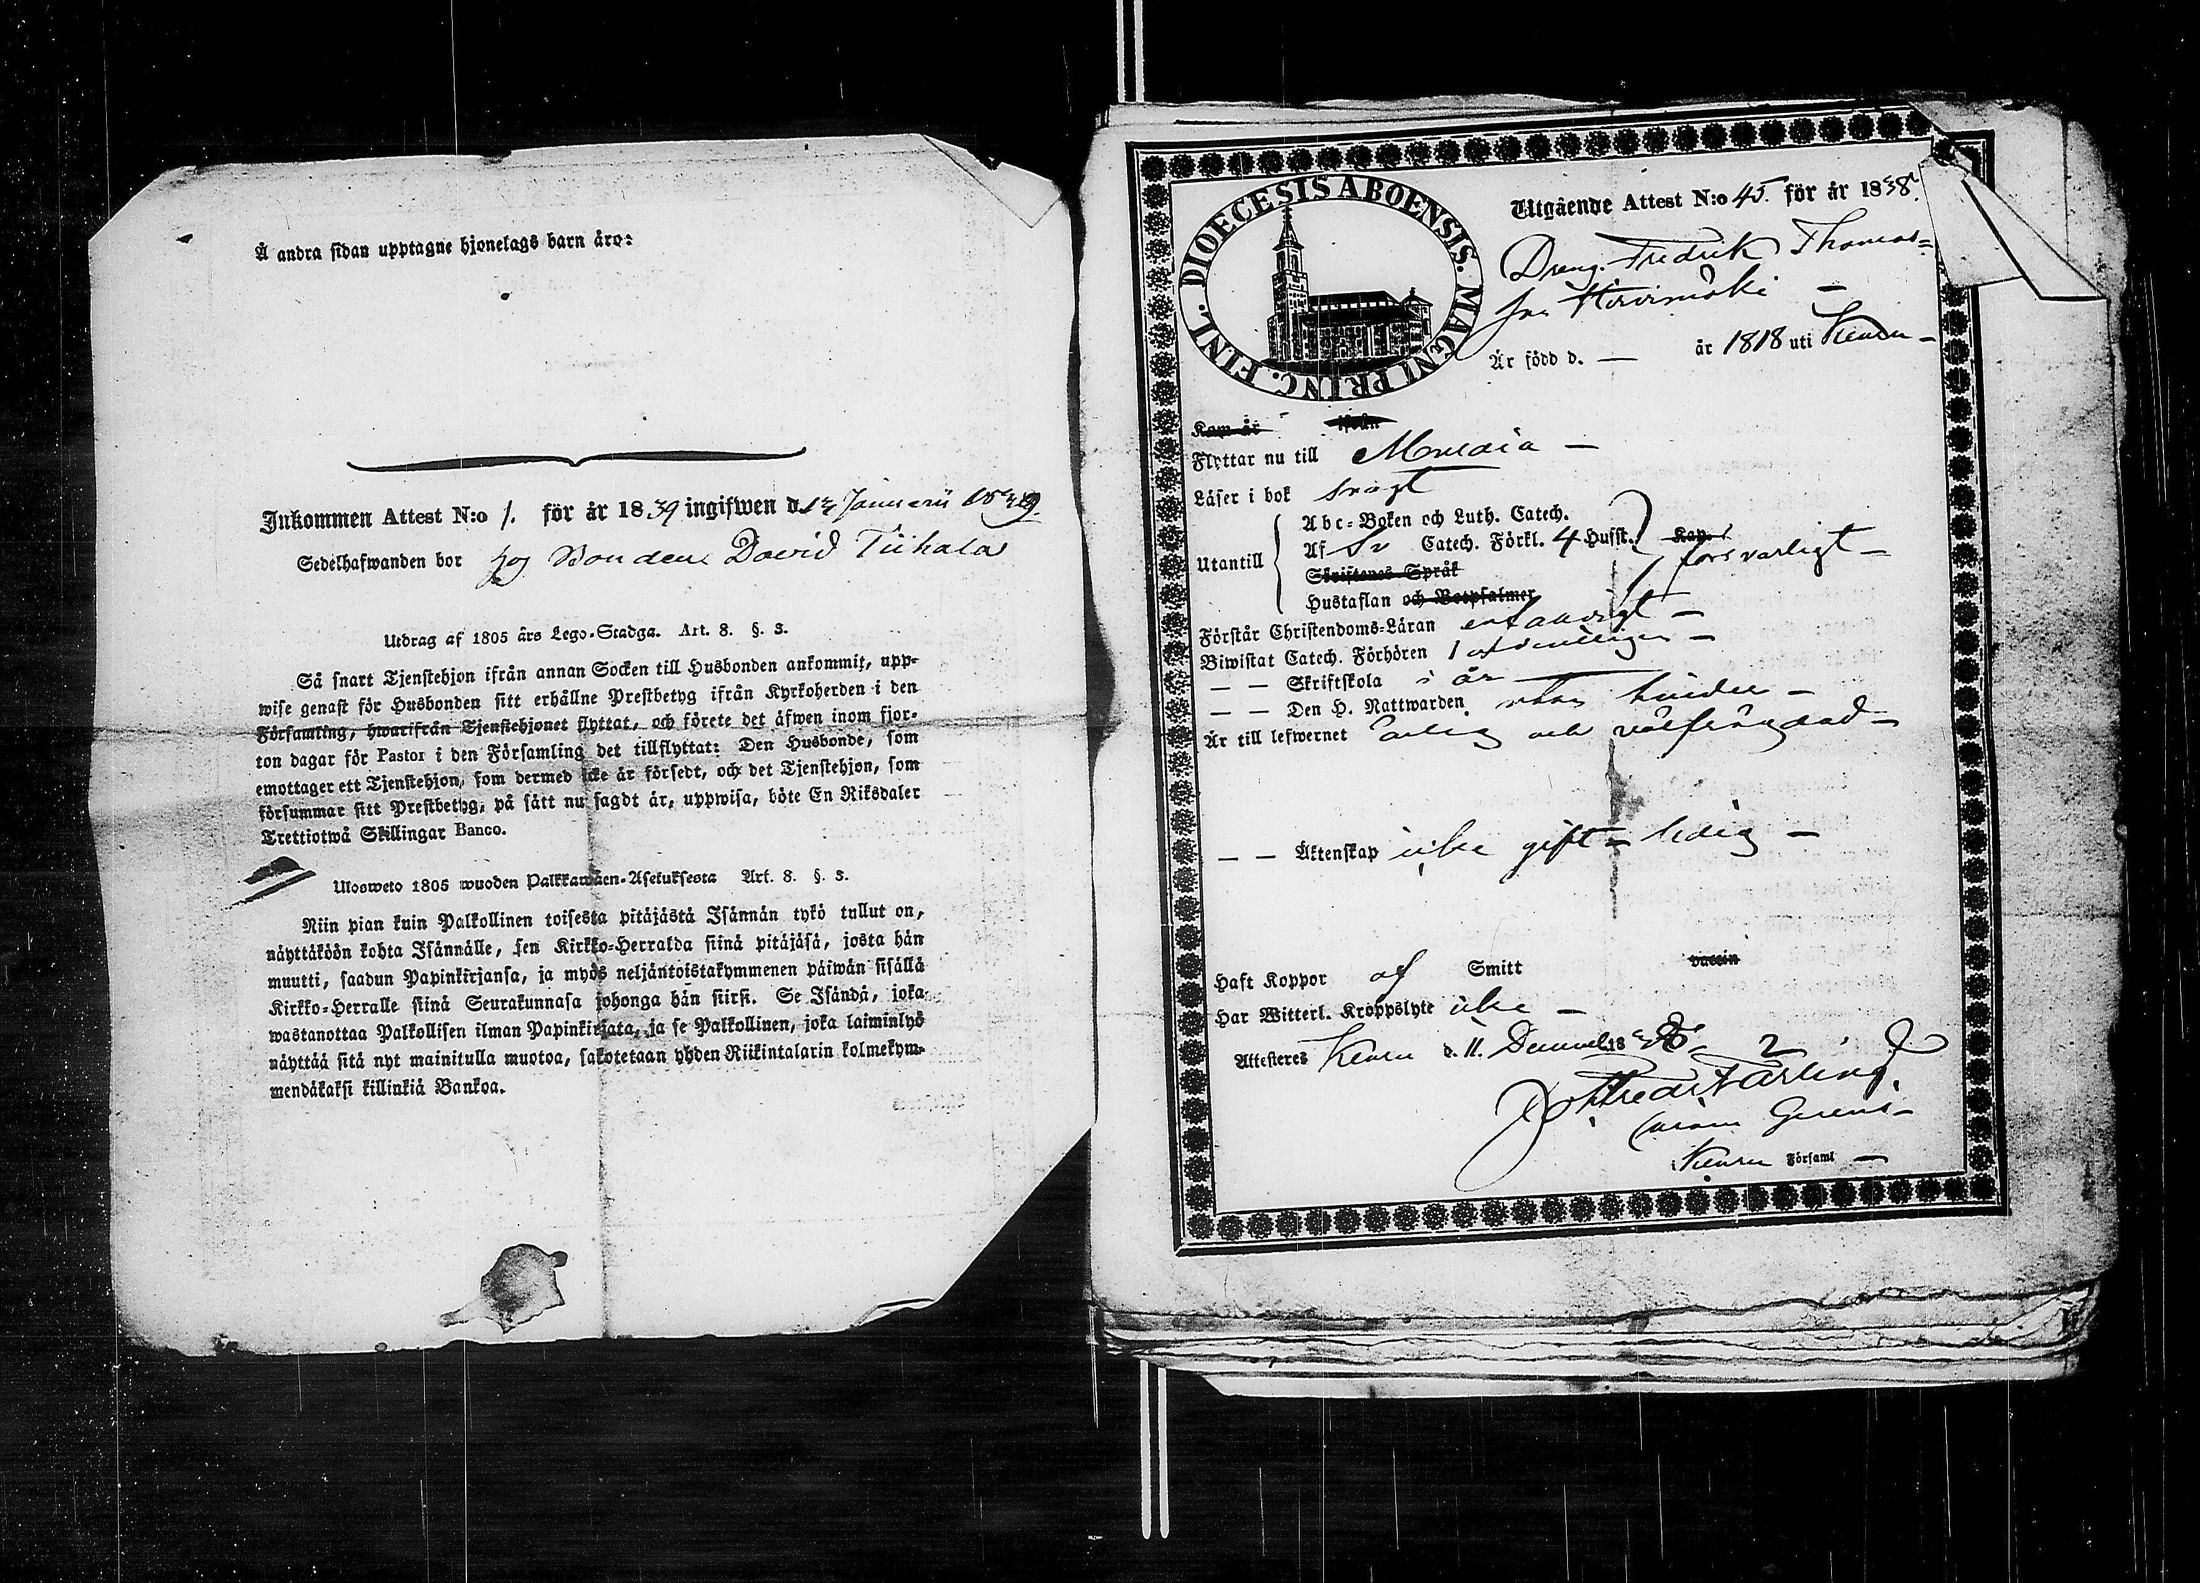 Å andra sidan upptagne hjonelags barn äro:
Inkommen Attest N:o 1. för år 1839 ingifwen d. 13 Januarii 1839.
Sedelhafwanden bor hos Bonden David Tiihala
Utdrag af 1805 års Lego-Stadga. Art. 8. §. 3.
Så snart Tjenstehjon ifrån annan Socken till Husbonden ankommit, upp-
wise genast för Husbonden sitt erhållne Prestbetyg ifrån Kyrkoherden i den
Församling, hwarifrån Tjenstehjonet flyttat, och förete det äfwen inom fjor-
ton dagar för Pastor i den Församling det tillflyttat: Den Husbonde, som
emottager ett Tjenstehjon, som dermed icke är försedt, och det Tjenstehjon, som
försummar sitt Prestbetyg, på sätt nu sagdt är, uppwisa, böte En Riksdaler
Trettiotwå Skillingar Banco.
Ulosweto 1805 wuoden Palkkawäen-Asetuksesta Art. 8. §. 3.
Niin pian kuin Palkollinen toisesta pitäjästä Isännän tykö tullut on,
näyttäköön kohta Isännälle, sen Kirkko-Herralda siinä pitäjäsä, josta hän
muutti, saadun Papinkirjansa, ja myös neljäntoistakymmenen päiwän sisällä
Kirkko-Herralle siinä Seurakunnasa johonga hän siirsi. Se Isändä, joka
wastanottaa Palkollisen ilman Papinkirjata, ja se Palkollinen, joka laiminlyö
näyttää sitä nyt mainitulla muotoa, sakotetaan yhden Riikintalarin kolmekym-
mendäkaksi killinkiä Bankoa.
DIOECESIS ABOENSIS. MAGNI PRINC. FINL.
Utgående Attest N:o 45. för år 1838.
Dreng. Fredrik Thomas=
son Hirvimäki
Är född d. — år 1818 uti Keuru
Kom år ifrån
Flyttar nu till Multia
Läser i bok svagt
Abc-Boken och Luth. Catech.
Utantill Af Sv Catech. Förkl. 4 Hufst. Kap. försvarligt
Skriftenes Språk
Hustaflan och Botpsalmer
Förstår Christendoms-Läran enfaldigt
Biwistat Catech. Förhören ordentligen
— — Skriftskola i år
— — Den H. Nattwarden utan hinder
Är till lefwernet Ärlig och välfrägdad
— — Äktenskap icke gift - ledig
Haft Koppor af Smitt vaccin
Har Witterl. Kroppslyte icke
Attesteres Keuru d. 11. December 1838.
Caräm Gerens
i Keuru Församl